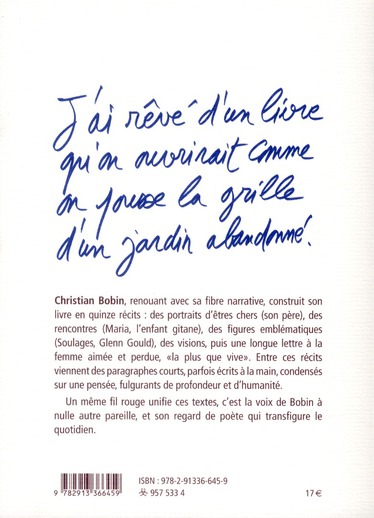 J'ai rêvé d'un livre
qu'on ouvrirait comme
on pousse la grille
d'un jardin abandonné.
Christian Bobin, renouant avec sa fibre narrative, construit son
livre en quinze récits : des portraits d'êtres chers (son père), des
rencontres (Maria, l'enfant gitane), des figures emblématiques
(Soulages, Glenn Gould), des visions, puis une longue lettre à la
femme aimée et perdue, «la plus que vive». Entre ces récits
viennent des paragraphes courts, parfois écrits à la main, condensés
sur une pensée, fulgurants de profondeur et d'humanité.
Un même fil rouge unifie ces textes, c'est la voix de Bobin à
nulle autre pareille, et son regard de poète qui transfigure le
quotidien.
ISBN : 978-2-91336-645-9
957 533 4
17 €
9 782913 366459